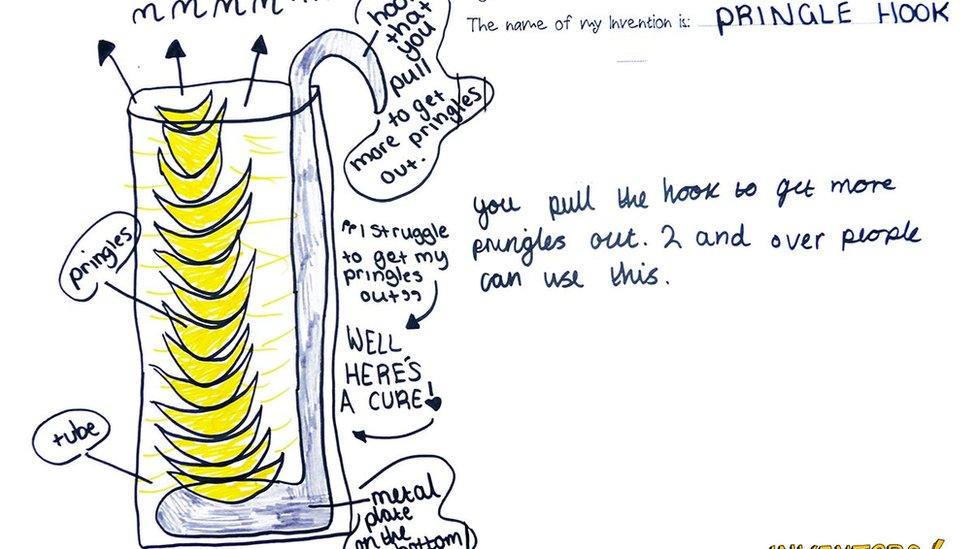 mmmm
The name of my Invention is: PRINGLE HOOK
hook
that
you
pull
more to get
out. pringles
pringles
"I struggle
to get my
pringles
out"
WELL
HERE'S
A CURE!
you pull the hook to get more
pringles out. 2 and over people
can use this.
tube
metal
plate
on the
bottom